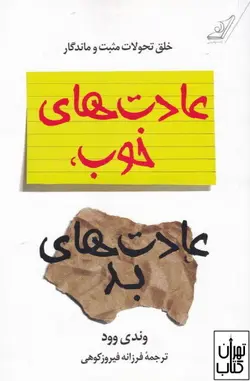 خلق تحولات مثبت و ماندگار
عادت‌های
خوب،
عادت‌های
بد
وندی وود
ترجمهٔ فرزانه فیروزکوهی
تهران
کتاب